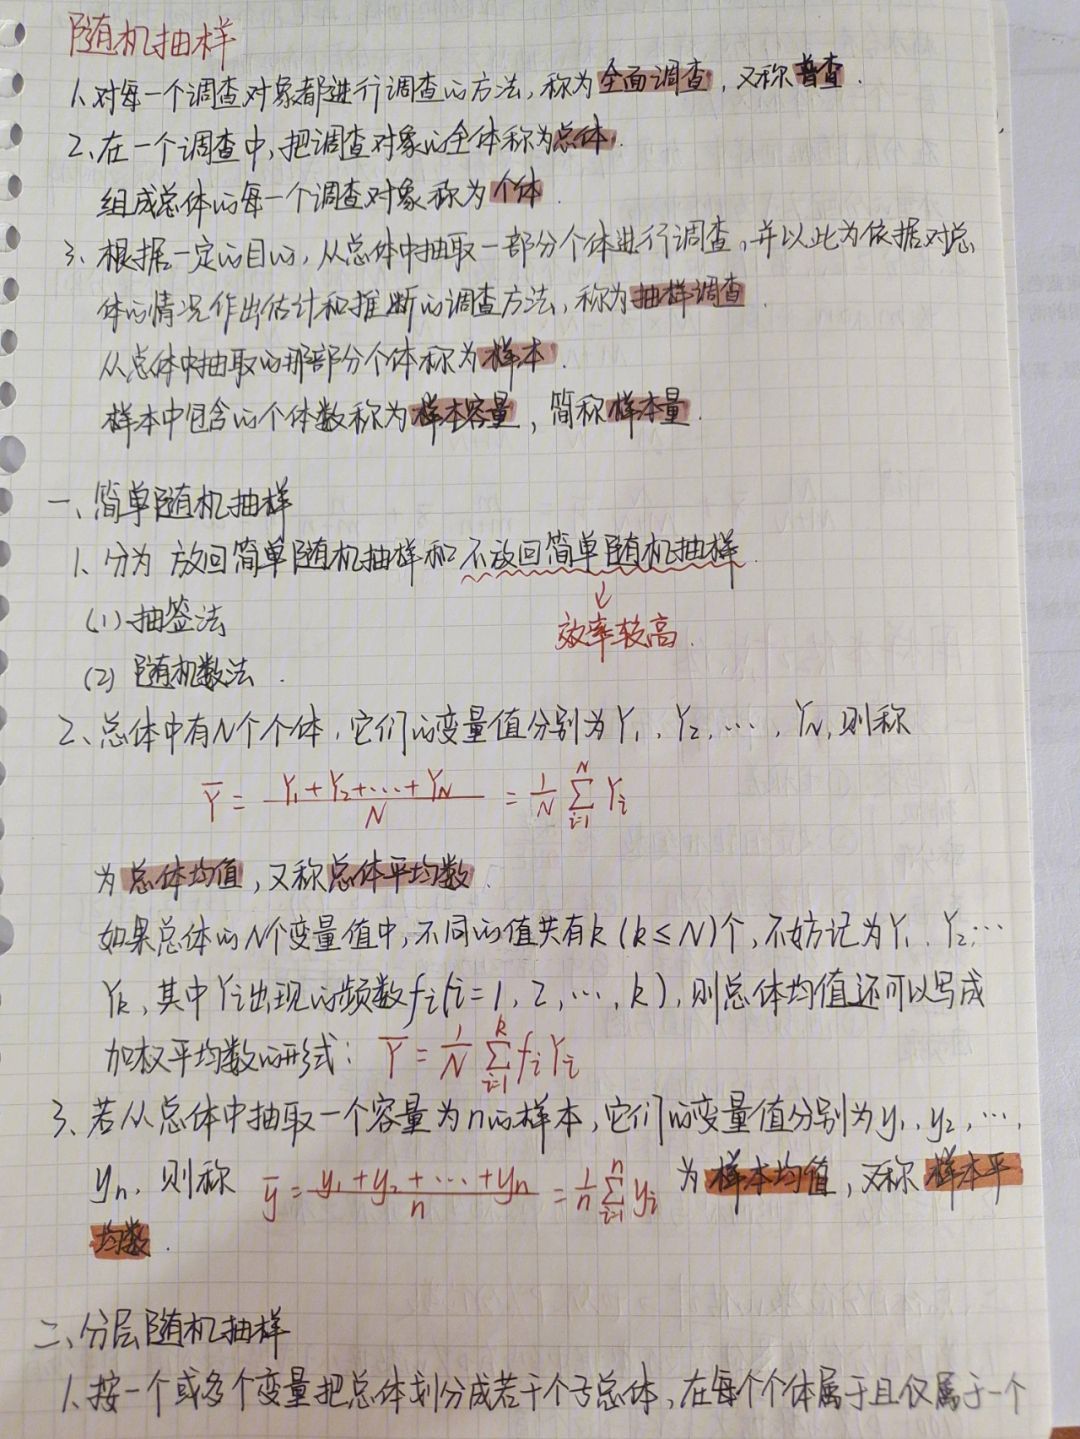 随机抽样
1、对每一个调查对象都进行调查的方法,称为全面调查,又称普查.
2、在一个调查中,把调查对象的全体称为总体.
组成总体的每一个调查对象称为个体.
3、根据一定的目的,从总体中抽取一部分个体进行调查,并以此为依据对总
体的情况作出估计和推断的调查方法,称为抽样调查.
从总体中抽取的那部分个体称为样本.
样本中包含的个体数称为样本容量,简称样本量.
一、简单随机抽样
1、分为 放回简单随机抽样和不放回简单随机抽样.
(1)抽签法
↓
效率较高.
(2)随机数法.
2、总体中有N个个体,它们的变量值分别为Y₁、Y₂、…、Y_N,则称
Ȳ = (Y₁+Y₂+…+Y_N)/N = 1/N ∑_{i=1}^{N} Y_i
为总体均值,又称总体平均数.
如果总体的N个变量值中,不同的值共有k(k≤N)个,不妨记为Y₁、Y₂…
Y_k,其中Y_i出现的频数f_i(i=1,2,…,k),则总体均值还可以写成
加权平均数的形式: Ȳ = 1/N ∑_{i=1}^{k} f_i Y_i
3、若从总体中抽取一个容量为n的样本,它们的变量值分别为y₁、y₂、…,
y_n,则称 ȳ = (y₁+y₂+…+y_n)/n = 1/n ∑_{i=1}^{n} y_i 为样本均值,又称样本平
均数.
二、分层随机抽样
1、按一个或多个变量把总体划分成若干个子总体,在每个个体属于且仅属于一个